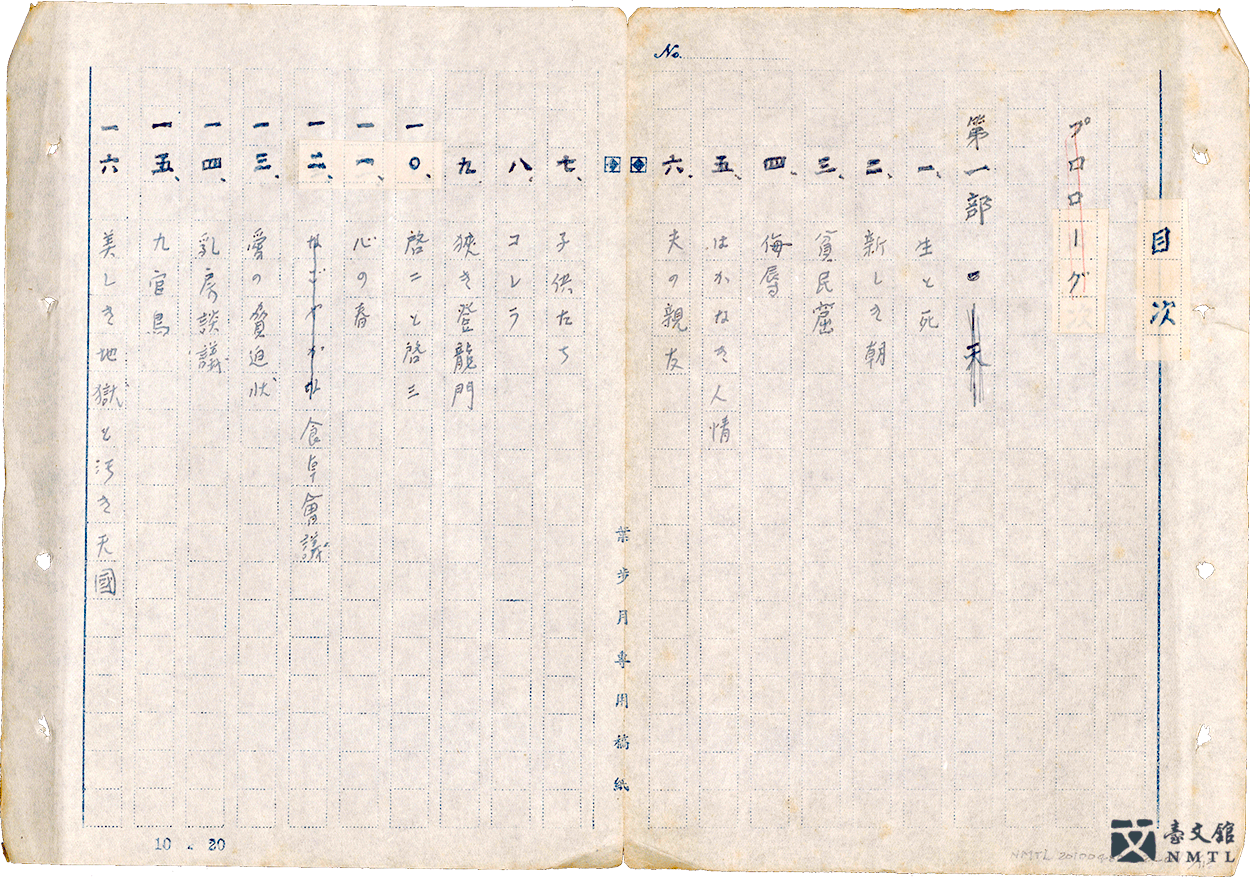 No.
目次
プロローグ
第一部
一、生と死
二、新しき朝
三、貧民窟
四、侮辱
五、はかなき人情
六、夫の親友
葉步月專用稿紙
七、子供たち
八、コレラ
九、狹き登龍門
一〇、啓二と啓三
一一、心の春
一二、なごやかな食卓會議
一三、愛の質迫狀
一四、乳房談議
一五、九官鳥
一六、美しき地獄と汚き天國
10 . 20
臺文館
NMTL